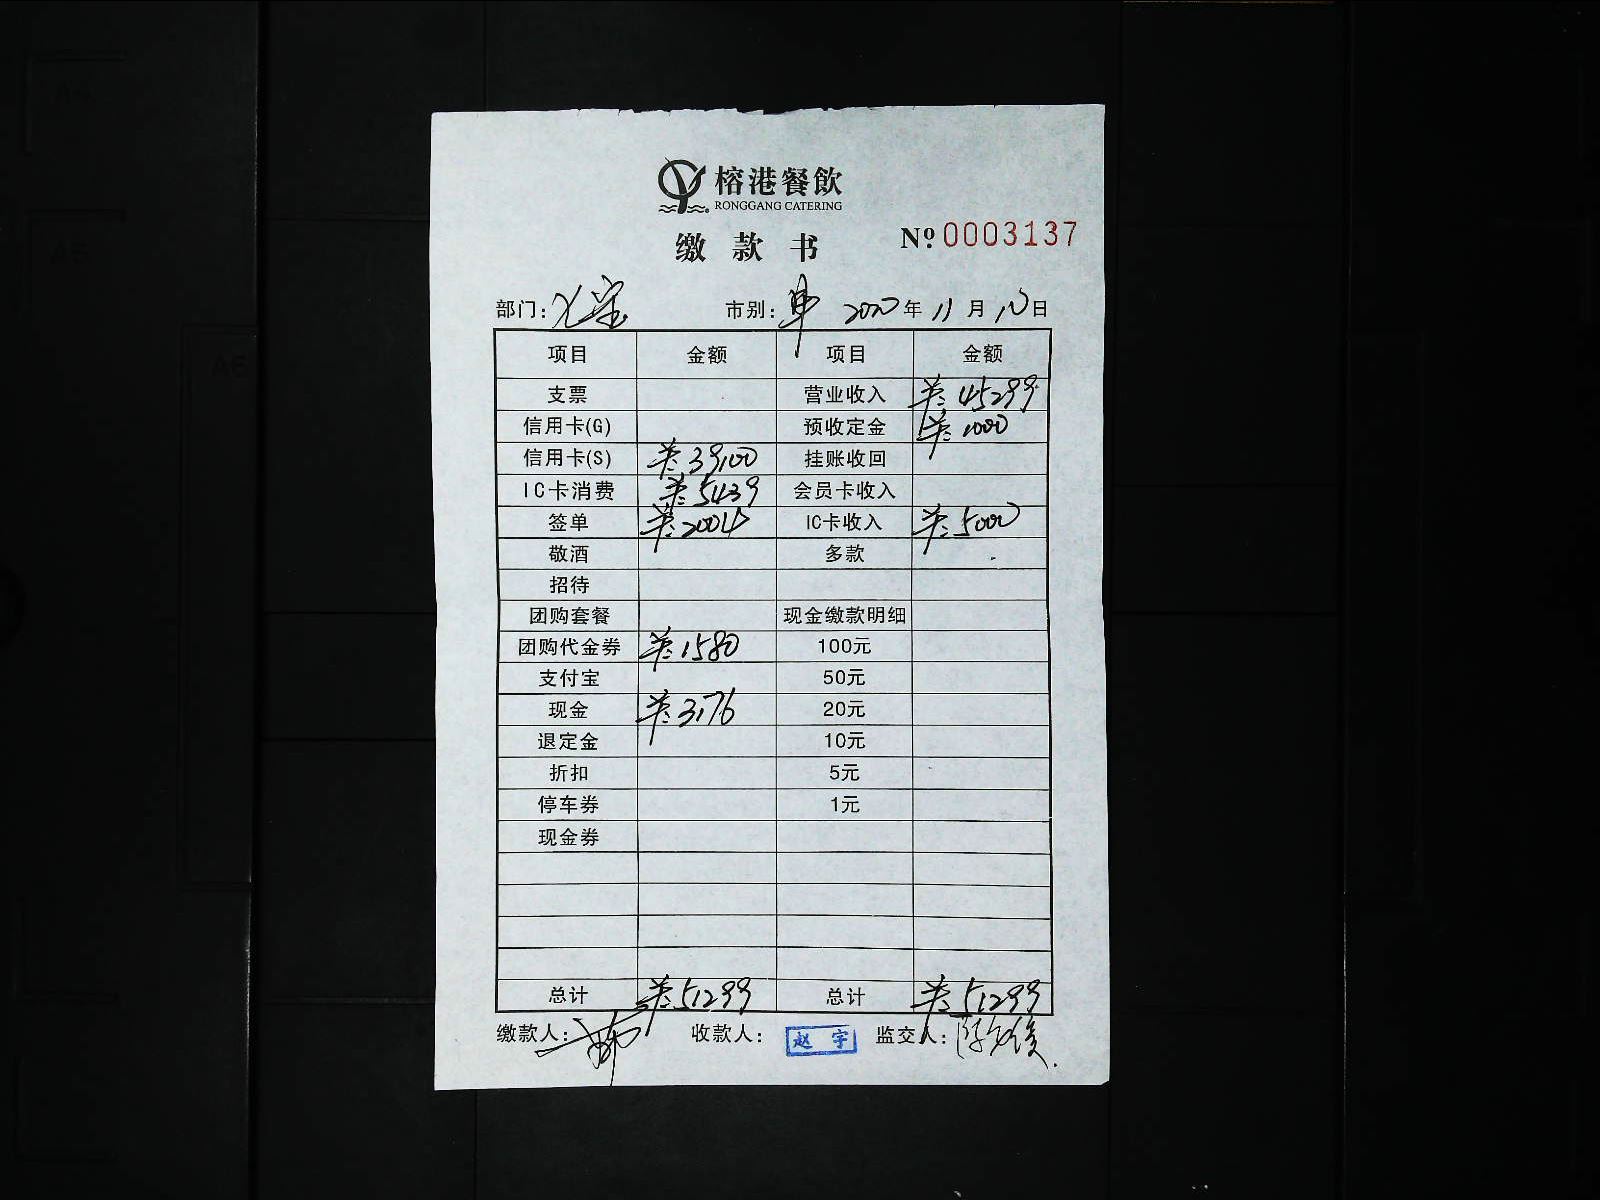 榕港餐飲
RONGGANG CATERING
缴款书
№ 0003137
部门: 七宝 市别: 2020年11月10日
项目 金额 项目 金额
支票 营业收入 ¥:45299
信用卡(G) 预收定金 ¥:1000
信用卡(S) ¥:39100 挂账收回
IC卡消费 ¥:5439 会员卡收入
签单 ¥:2004 IC卡收入 ¥:5000
敬酒 多款
招待
团购套餐 现金缴款明细
团购代金券 ¥:1580 100元
支付宝 50元
现金 ¥:3176 20元
退定金 10元
折扣 5元
停车券 1元
现金券
总计 ¥:51299 总计 ¥:51299
缴款人: 收款人: 赵宇 监交人: